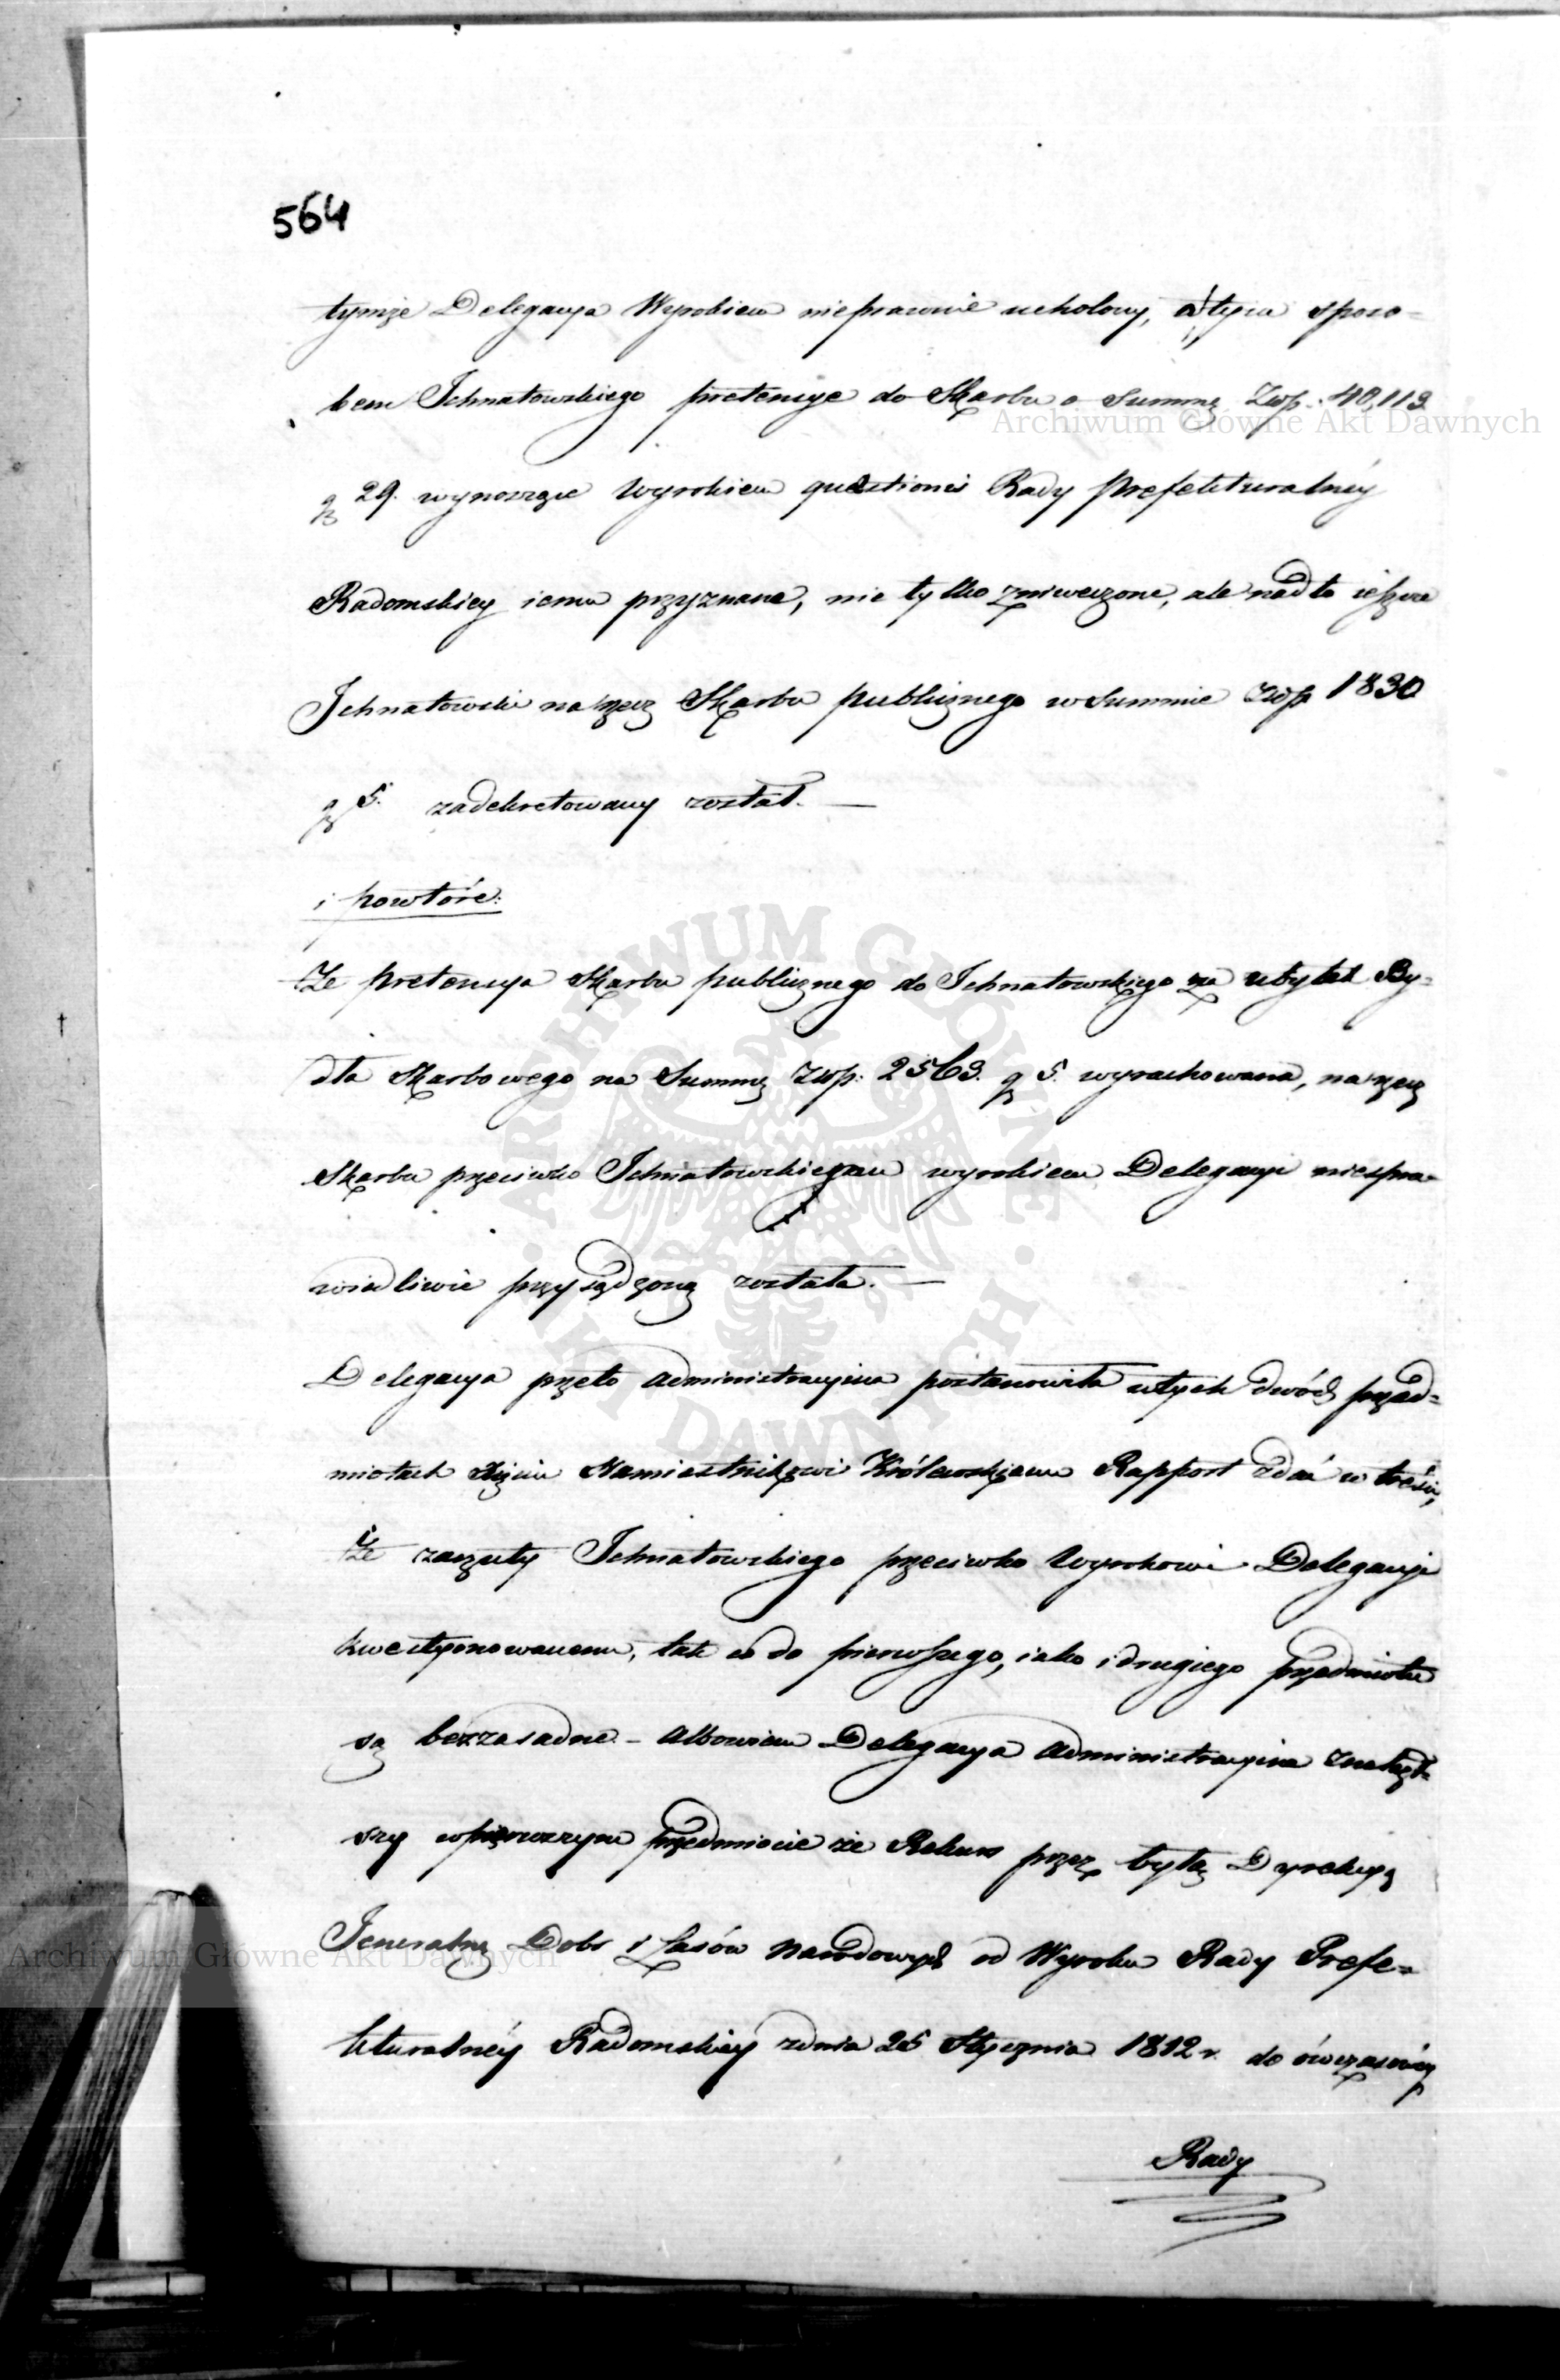 564
tymże Delegacya Wyrokiem nieprawnie uchylony, a tym sposo-
bem Ichnatowskiego pretensye do Skarbu o Summę Złp. 40,113
g 29. wynoszące Wyrokiem questionis Rady Prefekturalnéy
Radomskiey iemu przyznane, nie tylko zniweczone, ale nadto ieszcze
Ichnatowski na rzecz Skarbu publicznego w Summie Złp 1830
g 5. zadekretowany został. —
i powtóre:
Że pretensya Skarbu publicznego do Ichnatowskiego za ubytek By-
dła Skarbowego na Summę Złp: 2563. g 5. wyrachowana, na rzecz
Skarbu przeciwko Ichnatowskiemu wyrokiem Delegacyi niespra-
wiedliwie przysądzoną została. —
Delegacya przeto Administracyina postanowiła w tych dwóch przed-
miotach Xięciu Namiestnikowi Królewskiemu Rapport zdać w treści,
Że zarzuty Ichnatowskiego przeciwko Wyrokowi Delegacyi
kwestyonowanemu, tak co do pierwszego, iako i drugiego przedmiotu
są bezzasadne. - Albowiem Delegacya Administracyina znalazł-
szy w pierwszym przedmiocie że Rekurs przez byłą Dyrekcyą
Jeneralną Dobr i Lasów Narodowych od Wyroku Rady Prefe-
kturalnéy Radomskiey z dnia 25 Stycznia 1812 r. do ówczasowey
Rady
Archiwum Główne Akt Dawnych
ARCHIWUM GŁÓWNE AKT DAWNYCH
Archiwum Główne Akt Dawnych